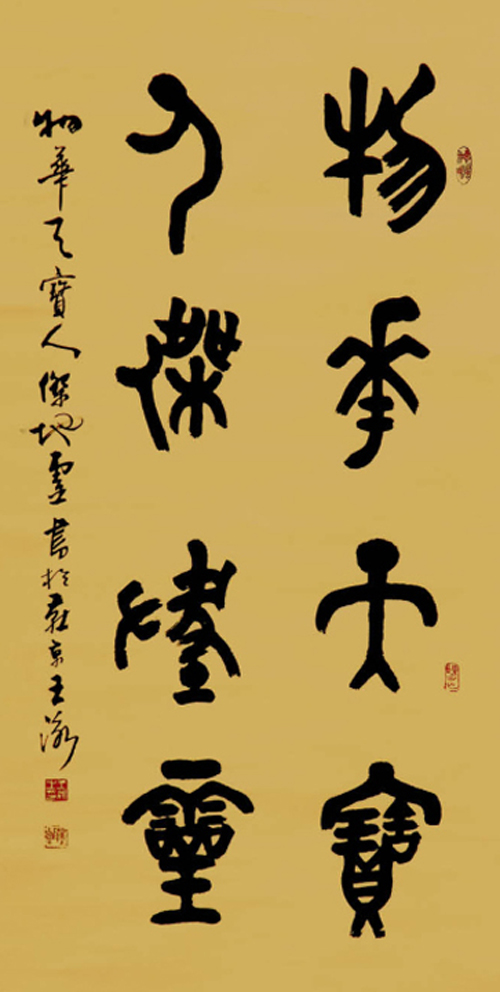 物華天寶
人傑地靈
物華天寶人傑地靈書於燕京王